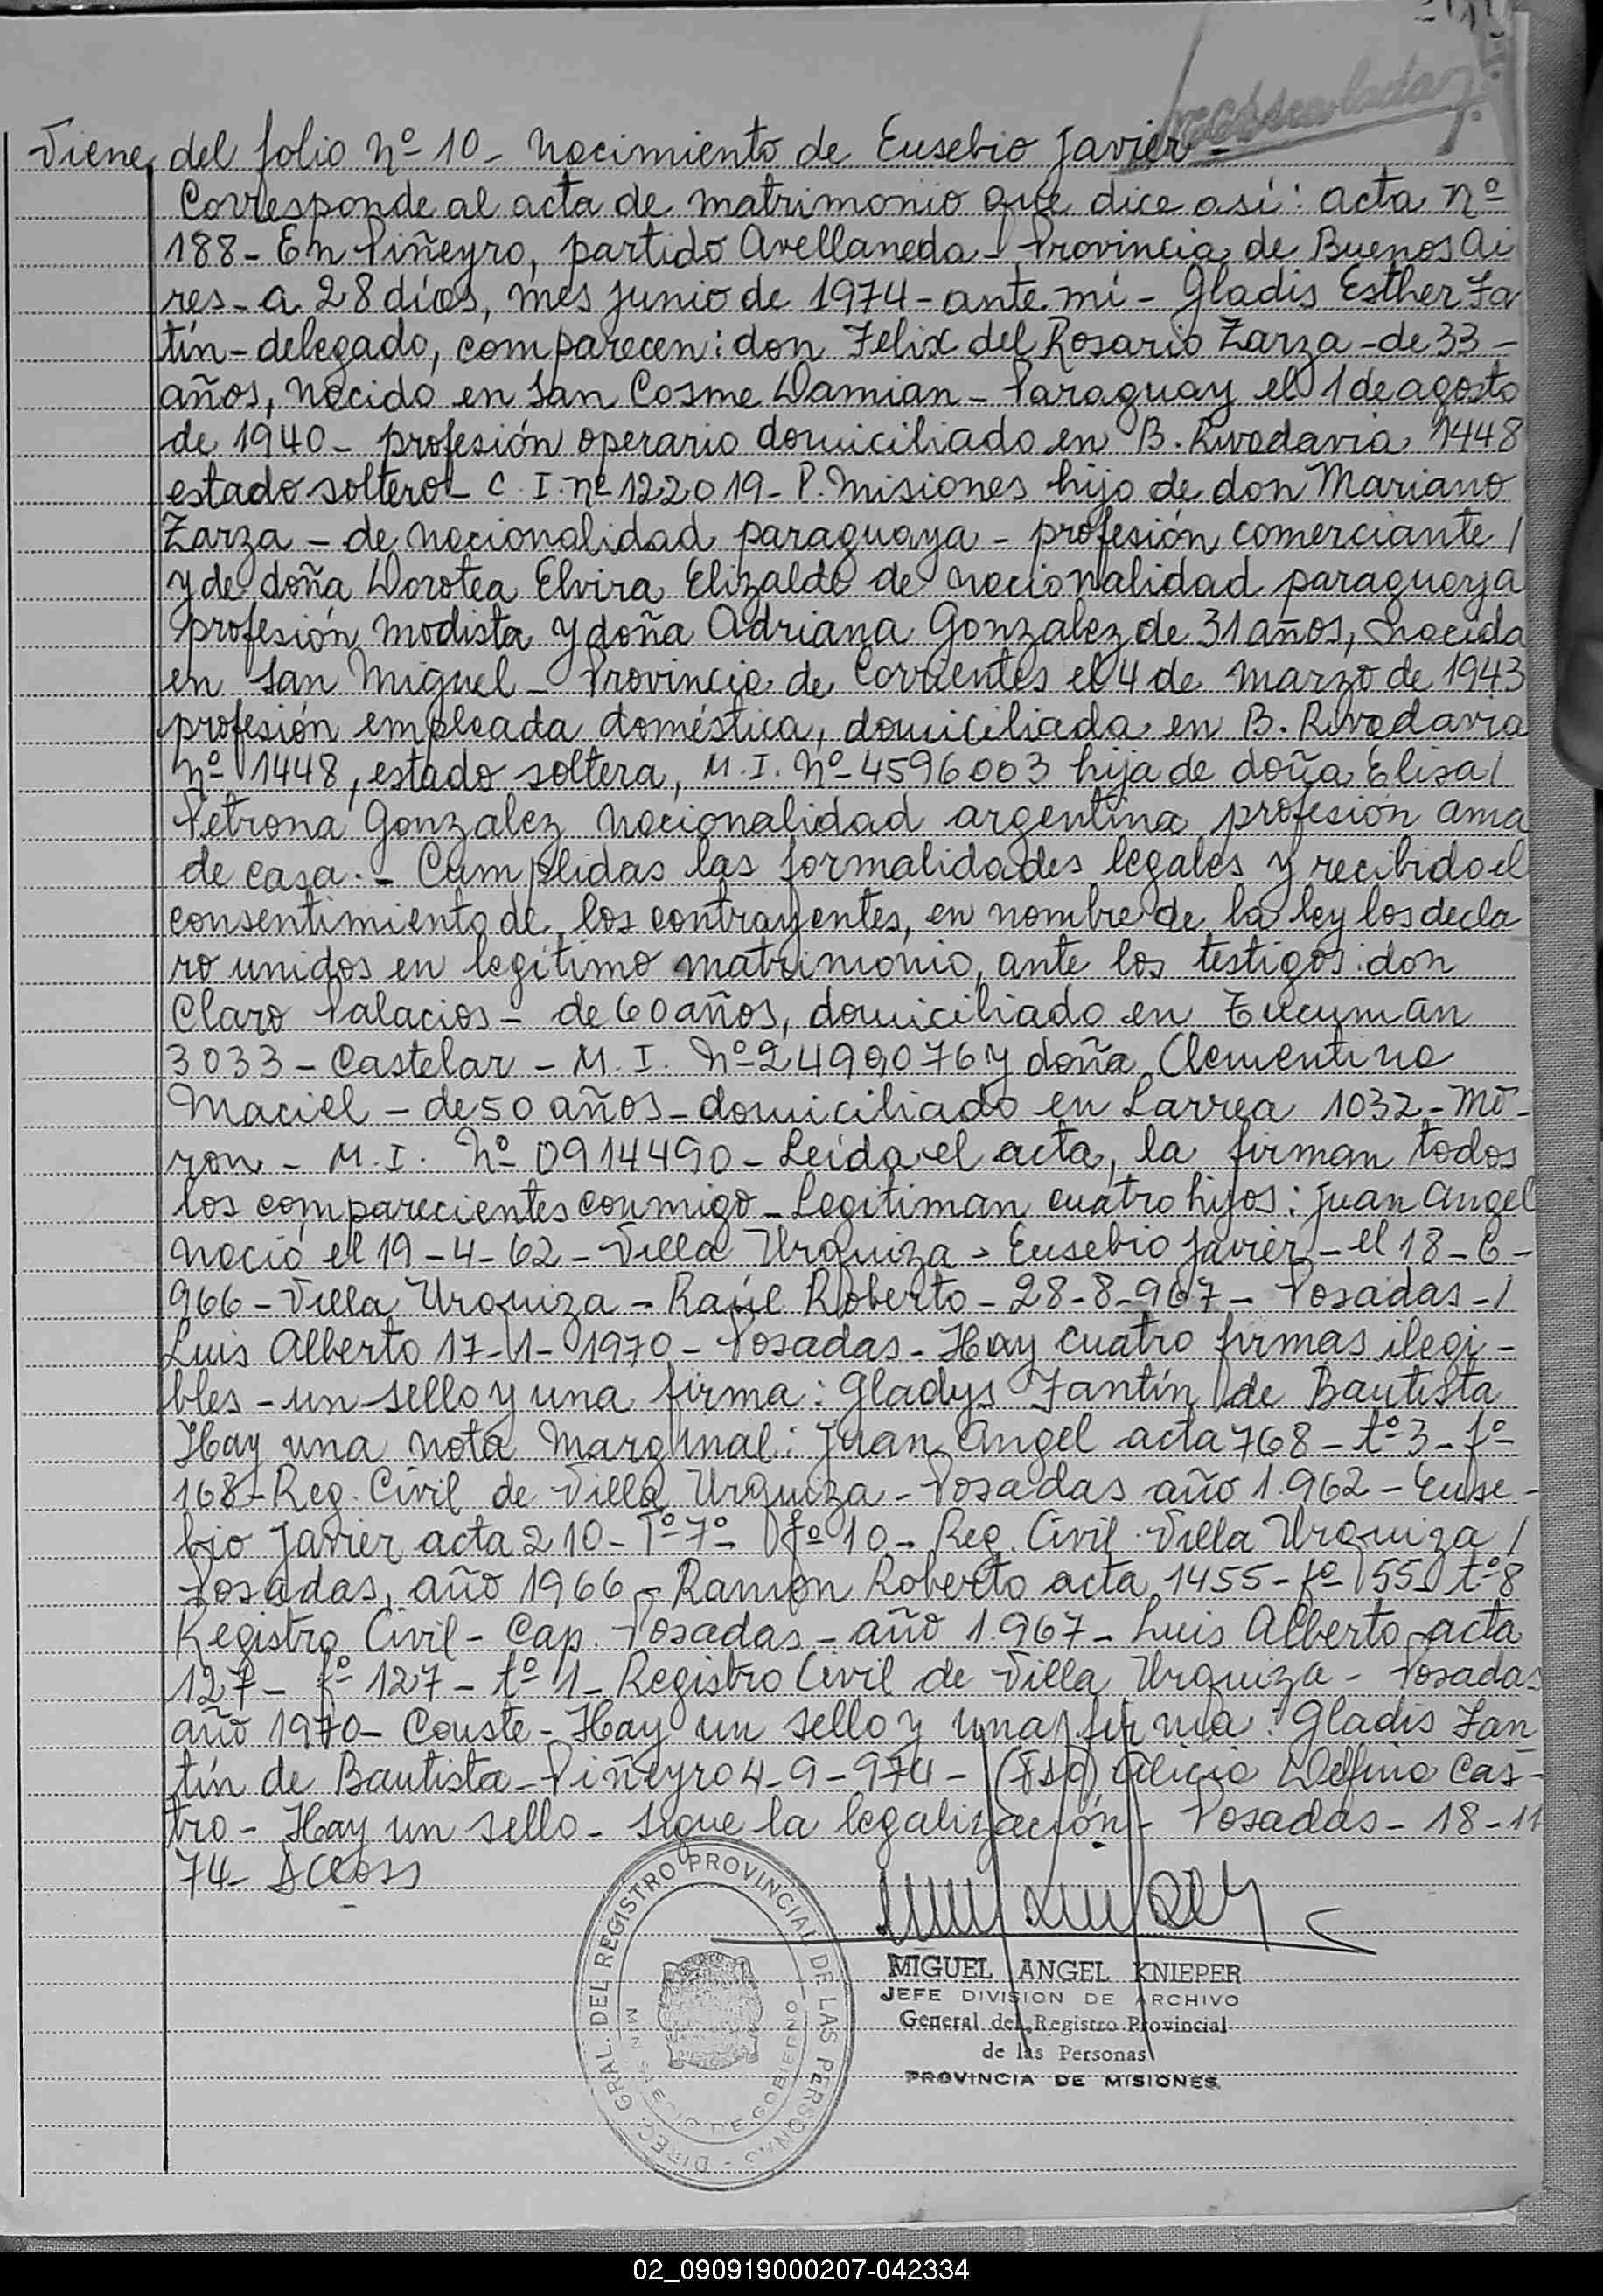 Viene del folio nº 10 - Nacimiento de Eusebio Javier -
Corresponde al acta de matrimonio que dice así: acta nº
188 - En Piñeyro, partido Avellaneda - Provincia de Buenos Ai
res - a 28 días, mes junio de 1974 - ante mí - Gladis Esther Fa
tín - delegado, comparecen: don Felix del Rosario Zarza - de 33 -
años, nacido en San Cosme Damian - Paraguay el 1 de agosto
de 1940 - profesión operario domiciliado en B. Rivadavia 1448
estado soltero - C. I. nº 122019 - P. Misiones hijo de don Mariano
Zarza - de nacionalidad paraguaya - profesión comerciante /
y de doña Dorotea Elvira Elizalde de nacionalidad paraguaya
profesión modista y doña Adriana Gonzalez de 31 años, nacida
en San Miguel - Provincia de Corrientes el 4 de marzo de 1943
profesión empleada doméstica, domiciliada en B. Rivadavia
nº 1448, estado soltera, M. I. nº 4596003 hija de doña Elisa /
Petrona Gonzalez nacionalidad argentina profesión ama
de casa. - Cumplidas las formalidades legales y recibido el
consentimiento de los contrayentes, en nombre de la ley los decla
ro unidos en legítimo matrimonio, ante los testigos: don
Claro Palacios - de 60 años, domiciliado en Tucuman
3033 - Castelar - M. I. nº 2499076 y doña Clementina
Maciel - de 50 años - domiciliado en Larrea 1032 - Mo -
ron - M. I. nº 0914490 - Leída el acta, la firman todos
los comparecientes conmigo - Legitiman cuatro hijos: Juan Angel
nació el 19 - 4 - 62 - Villa Urquiza - Eusebio Javier - el 18 - 6 -
966 - Villa Urquiza - Raúl Roberto - 28 - 8 - 967 - Posadas - /
Luis Alberto 17 - 1 - 1970 - Posadas - Hay cuatro firmas ilegi -
bles - un sello y una firma: Gladys Fantín de Bautista
Hay una nota marginal: Juan Angel acta 768 - tº 3 - fº
168 - Reg. Civil de Villa Urquiza - Posadas año 1.962 - Euse -
bio Javier acta 210 - Tº 7º - fº 10 - Reg. Civil Villa Urquiza /
Posadas, año 1966 - Ramon Roberto acta 1455 - fº 55 tº 8
Registro Civil - Cap. Posadas - año 1.967 - Luis Alberto acta
127 - fº 127 - tº 1 - Registro Civil de Villa Urquiza - Posadas
año 1970 - Conste - Hay un sello y una firma: Gladis Fan
tín de Bautista - Piñeyro 4 - 9 - 974 - (Fdo) Alicia Delfina Cas -
tro - Hay un sello - Sigue la legalización - Posadas - 18 - 11
74 -
DIREC. GRAL. DEL REGISTRO PROVINCIAL DE LAS PERSONAS
MINISTERIO DE GOBIERNO
MIGUEL ANGEL KNIEPER
JEFE DIVISION DE ARCHIVO
General del Registro Provincial
de las Personas
PROVINCIA DE MISIONES
02_090919000207-042334